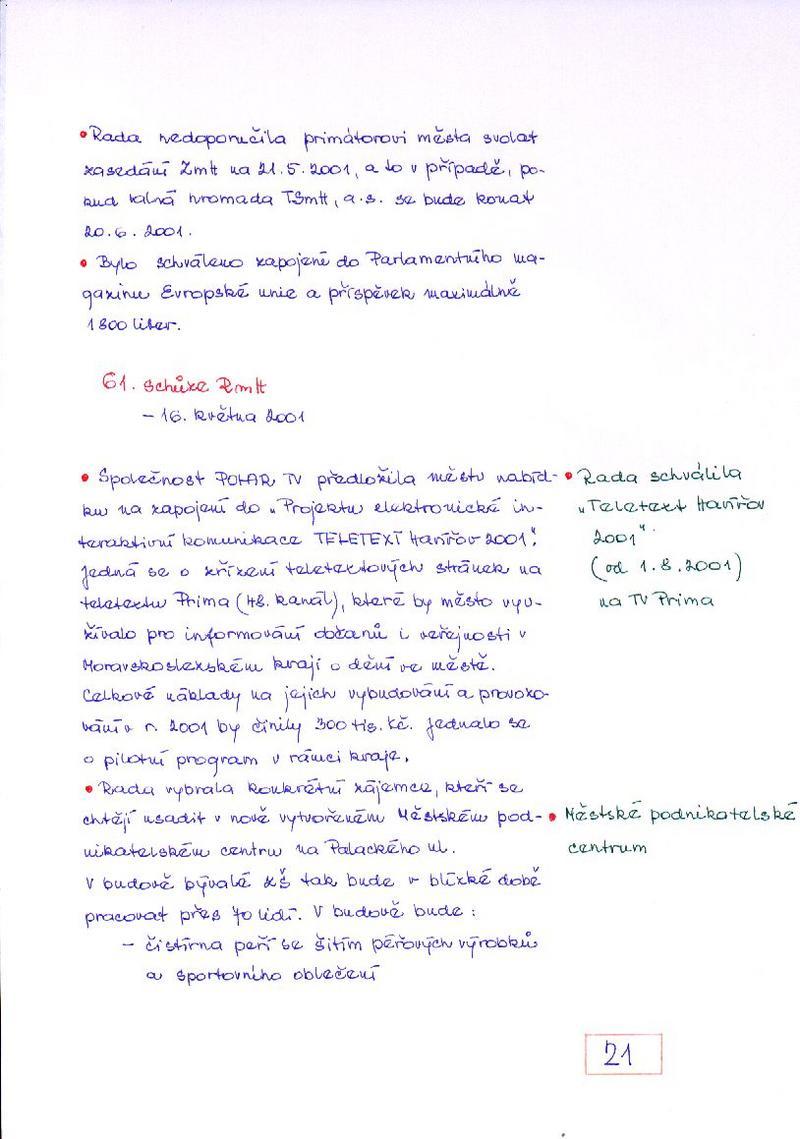 • Rada nedoporučila primátorovi města svolat
zasedání ZmH na 21.5.2001, a to v případě, po-
kud valná hromada TSmH, a.s. se bude konat
20.6.2001.
• Bylo schváleno zapojení do Parlamentního ma-
gazínu Evropské unie a příspěvek maximálně
1800 liber.
61. schůze RmH
– 16. května 2001
• Společnost POLAR TV předložila městu nabíd-
ku na zapojení do „Projektu elektronické in-
teraktivní komunikace TELETEXT Havířov 2001".
Jedná se o zřízení teletextových stránek na
teletextu Prima (48. kanál), které by město vyu-
žívalo pro informování občanů i veřejnosti v
Moravskoslezském kraji o dění ve městě.
Celkové náklady na jejich vybudování a provozo-
vání v r. 2001 by činily 300 tis. kč. Jednalo se
o pilotní program v rámci kraje.
• Rada vybrala konkrétní zájemce, kteří se
chtějí usadit v nově vytvořeném Městském pod-
nikatelském centru na Palackého ul.
V budově bývalé ZŠ tak bude v blízké době
pracovat přes 70 lidí. V budově bude:
– čistírna peří se šitím péřových výrobků
a sportovního oblečení
• Rada schválila
„Teletext Havířov
2001"
(od 1.8.2001)
na TV Prima
• Městské podnikatelské
centrum
21